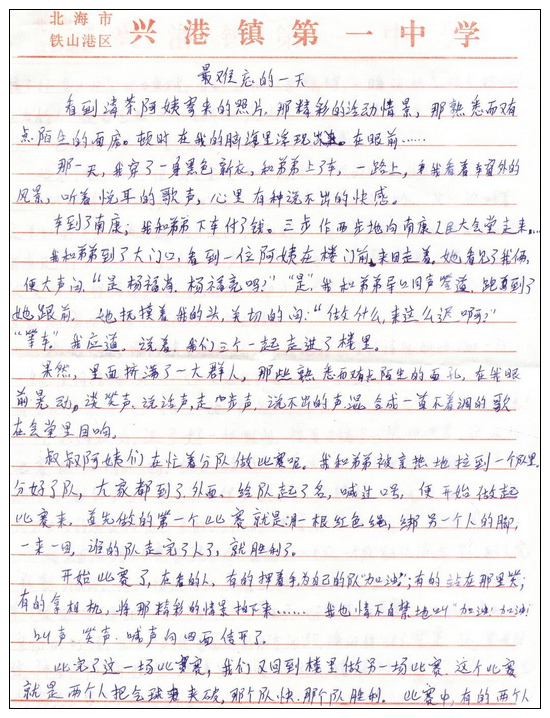 北海市
铁山港区 兴港镇第一中学
最难忘的一天
看到清茶阿姨寄来的照片,那精彩的活动情景,那熟悉而又有
点陌生的面孔。顿时在我的脑海里浮现出来。在眼前……
那一天,我穿了一身黑色新衣,和弟弟上了车,一路上,我看着车窗外的
风景,听着悦耳的歌声,心里有种说不出的快感。
车到了南康,我和弟弟下车付了钱。三步作两步地向南康人民大会堂走来…
我和弟弟到了大门口,看到一位阿姨在楼门前来回走着。她看见了我俩,
便大声问“是杨福海、杨福亮吗?”“是”我和弟弟异口同声答道,跑到了
她跟前。她抚摸着我的头,关切的问:“做什么,来这么迟啊?”
“等车”我应道,说着,我们三个一起走进了楼里。
果然,里面挤满了一大群人,那些熟悉而有点陌生的面孔,在我眼
前晃动,谈笑声、说话声,走步声,说不出的声混合成一首不着调的歌
在会堂里回响。
叔叔阿姨们在忙着分队做比赛呢。我和弟弟被亲热地拉到一个队里,
分好了队,大家都到了外面、给队起了名,喊过口号,便开始做起
比赛来,首先做的第一个比赛就是用一根红色绳,绑另一个人的脚,
一来一回,谁的队走完了人了,就胜利了。
开始比赛了,在看的人,有的挥着手为自己的队“加油”;有的站在那里笑;
有的拿相机,将那精彩的情景拍下来……我也情不自禁地叫“加油!加油!
叫声、笑声、喊声向四面传开了。
比完了这一场比赛,我们又回到楼里做另一场比赛,这个比赛
就是两个人把气球夹破,那个队快,那个队胜利。比赛中,有的两个人